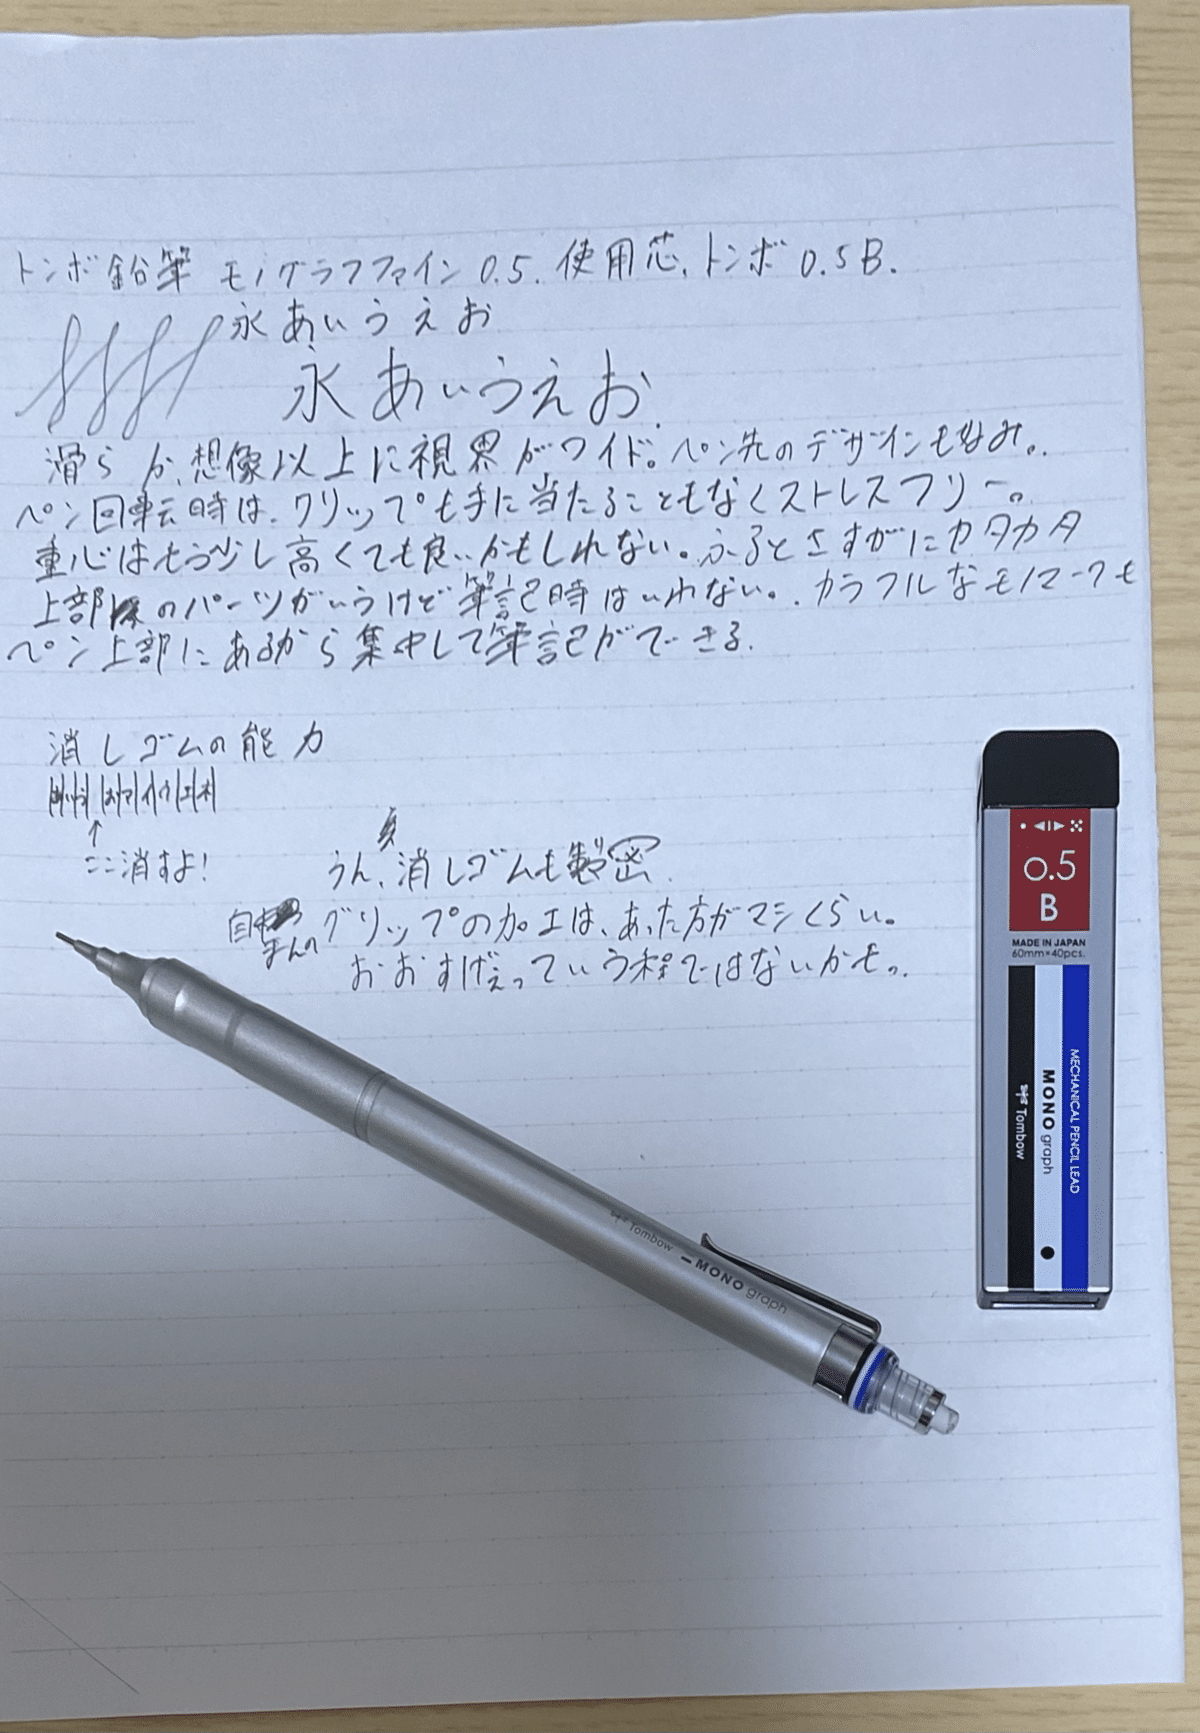 トンボ鉛筆 モノグラフファイン0.5. 使用芯、トンボ0.5B.
永あいうえお
永あいうえお.
滑らか、想像以上に視界がワイド。ペン先のデザインも好み。
ペン回転時は、クリップも手に当たることもなくストレスフリー。
重心はもう少し高くても良いかもしれない。ふるとさすがにカタカタ
上部のパーツがいうけど筆記時はいわない。カラフルなモノマークも
ペン上部にあるから集中して筆記ができる.
消しゴムの能力
↑
ここ消すよ!
うん、消しゴムも密.
自まんのグリップの加工は、あった方がマシくらい。
おおすげぇっていう程ではないかもっ.
0.5
B
MADE IN JAPAN
60mm×40pcs.
MECHANICAL PENCIL LEAD
MONO graph
Tombow
Tombow
MONO graph